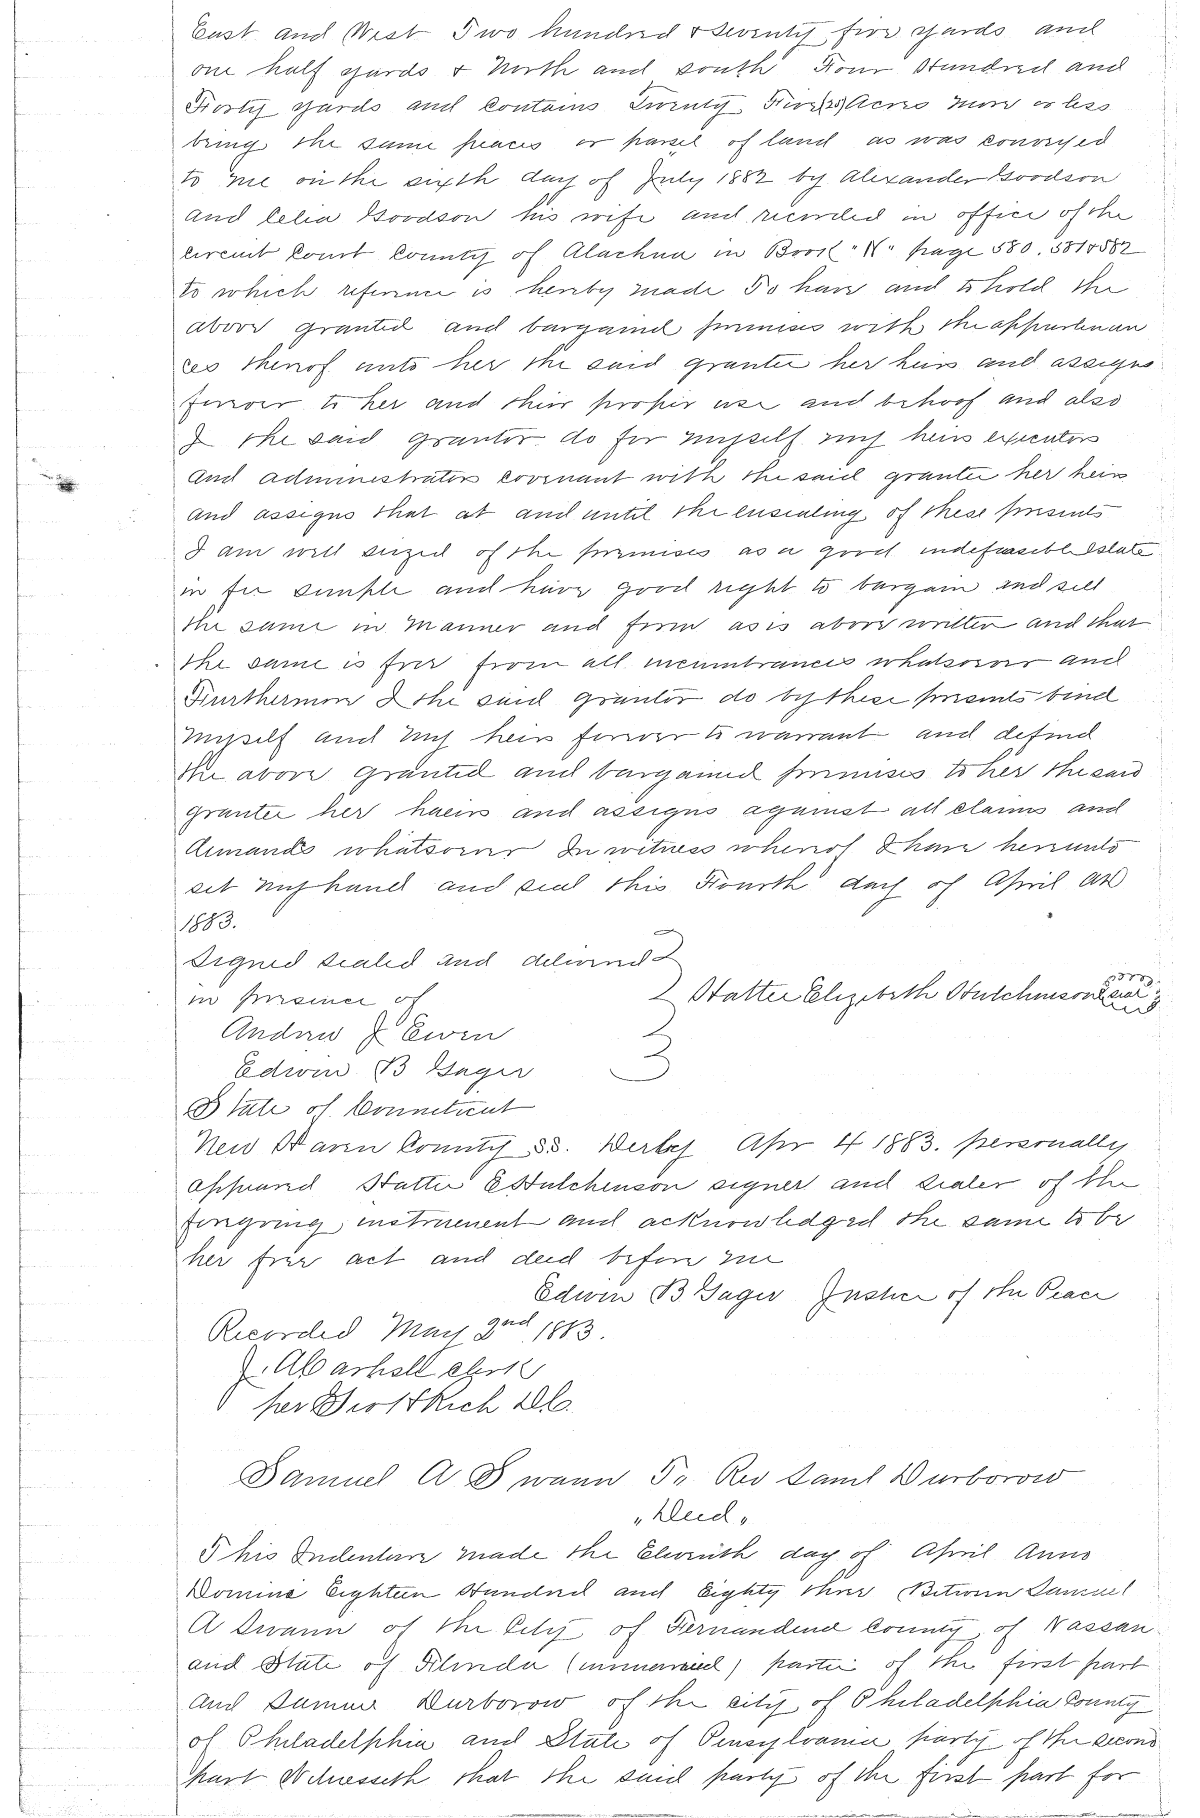 East and West Two hundred & seventy five yards and
one half yards & North and south Four Hundred and
Forty yards and contains Twenty Five (25) Acres more or less
being the same peaces or parsel of land as was conveyed
to me on the sixth day of July 1882 by Alexander Goodson
and Celia Goodson his wife and recorded in office of the
circuit Court County of Alachua in Book "N" page 580. 581 & 582
to which reference is hereby made To have and to hold the
above granted and bargaind premises with the appurtenan
ces thereof unto her the said grantee her heirs and assigns
forever to her and their proper use and behoof and also
I the said grantor do for myself my heirs executors
and administrators covenant with the said grantee her heirs
and assigns that at and until the ensealing of these presents
I am well seized of the premises as a good indefeasible Estate
in fee simple and have good right to bargain and sell
the same in manner and form as is above written and that
the same is free from all incumbrances whatsoever and
Furthermore I the said grantor do by these presents bind
myself and my heirs forever to warrant and defend
the above granted and bargained premises to her the said
grantee her haeirs and assigns against all claims and
demands whatsoever In witness whereof I have hereunto
set my hand and seal this Fourth day of April AD
1883.
Signed sealed and delivered
in presence of
Hattee Elizebeth Hutchinson seal
Andrew J Ewen
Edwin B Gager
State of Conneticut
New Haven County SS. Derby Apr 4 1883. personally
appeared Hattee E Hutchenson signer and sealer of the
foregoing instruement and acknowledged the same to be
her free act and deed before me
Edwin B Gager Justice of the Peace
Recorded May 2nd 1883.
J. A Carlisle clerk
per Rich DC.
Samuel A Swann To Rev Saml Durborow
"Deed"
This Indenture made the Eleventh day of April Anno
Domini Eighteen Hundred and Eighty three Between Samuel
A Swann of the City of Fernandena County of Nassau
and State of Florida (unmarried) partie of the first part
and Durborow of the city of Philadelphia County
of Philadelphia and State of Pensylvania party of the second
part Witnesseth that the said party of the first part for